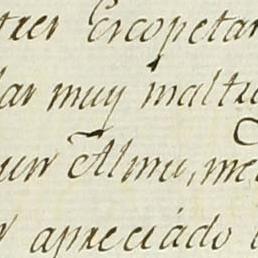 tres Escopetar
lar muy maltra
un Almu, me
r apreciado